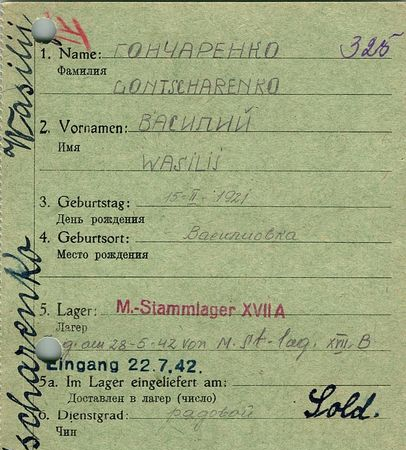 1. Name: ГОНЧАРЕНКО 325
Фамилия
GONTSCHARENKO
2. Vornamen: ВАСИЛИЙ
Имя
WASILIJ
3. Geburtstag: 15-II-1921
День рождения
4. Geburtsort: Василиовка
Место рождения
5. Lager: M.-Stammlager XVII A
Лагер
am 28-5-42 von M. St-lag. XVII B
Eingang 22.7.42.
5a. Im Lager eingeliefert am:
Доставлен в лагер (число)
6. Dienstgrad: радовой Sold.
Чин
scharenko Wasilij